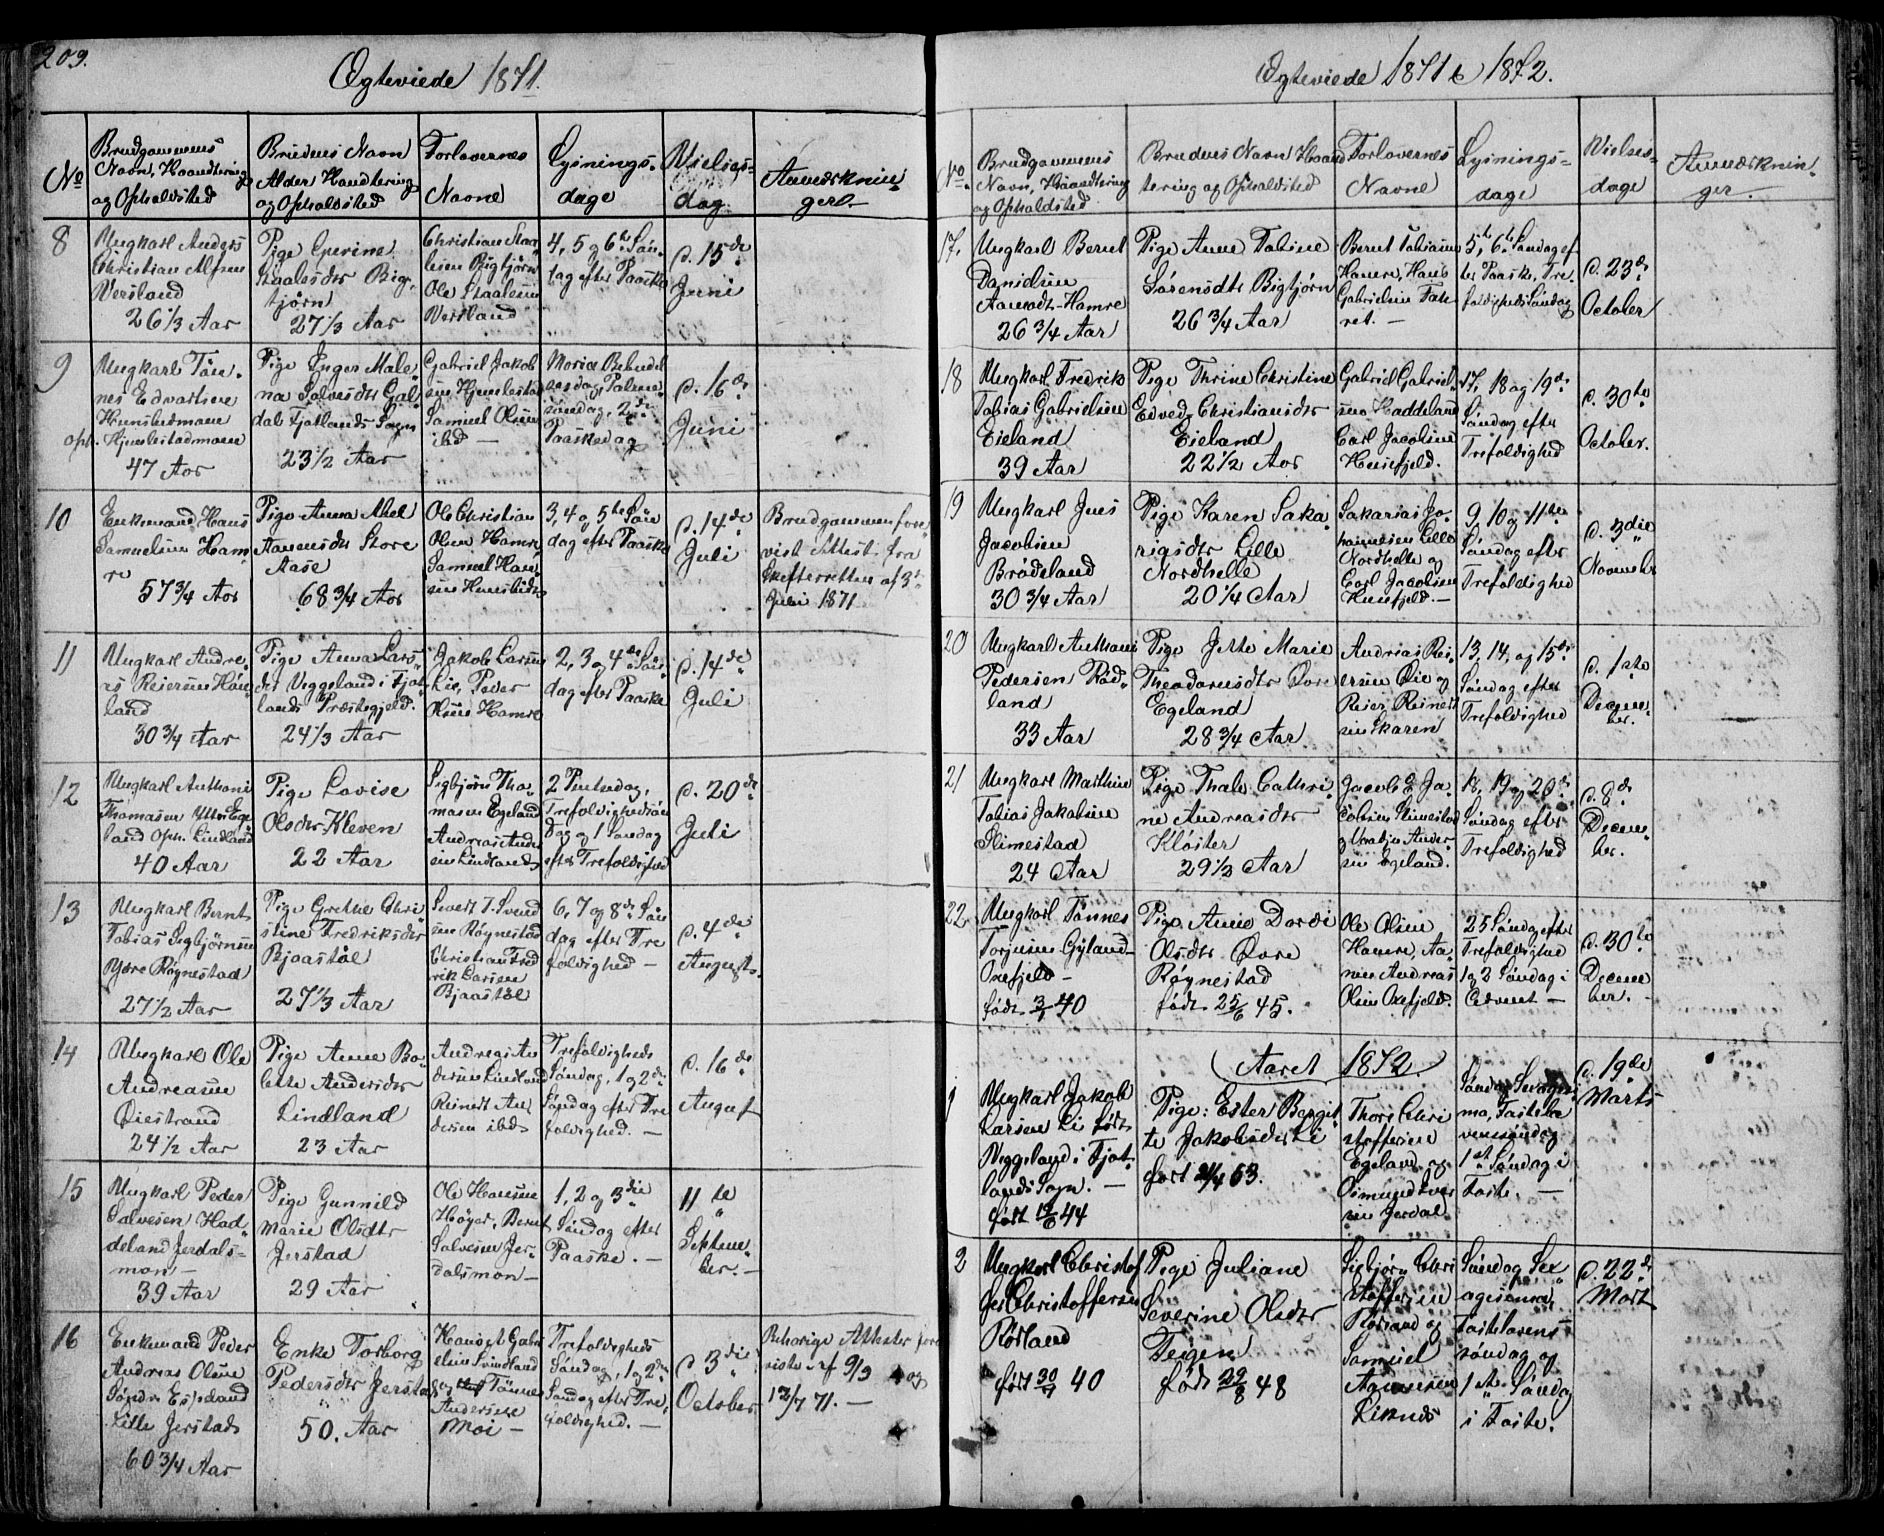 209.
Ægteviede 1871.
No
Brudgommens
Navn, Haandtering
og Opholdsted
Brudens Navn
Alder Handtering
og Opholdsted
Forlovernes
Navne
Lysnings-
dage
Vielses-
dag
Anmærknin-
ger.
8
Ungkarl Anders
Christian Alfsen
Versland
26 1/3 Aar
Pige Gurine
Staalesdtr Big-
tjörn
27 1/3 Aar
Christian Staa-
lesen Bigtjörn
Ole Staalesen
Versland
4, 5 og 6te Sön-
dag efter Paaske
d. 15de
Juni
9
Ungkarl Tön-
nes Edvartsen
Hunsbedmoen
Oph. Hjemlestadmoen
47 Aar
Pige Inger Male-
na Salvesdtr Gal-
dal Fjotlands Sogn
23 1/2 Aar
Gabriel Jakob-
sen Hjemlestad
Samuel Olsen
ibd —
Mariæ Bebudel-
sesdag, Palme-
söndag, 2den
Paaskedag
d. 16de
Juni
10
Enkemand Hans
Samuelsen Ham-
re
57 3/4 Aar
Pige Anna Abel
Aanensdtr Store
Aase
68 3/4 Aar
Ole Christian
Olsen Hamre
Samuel Han-
sen Hunsbedt
3, 4 og 5te Sön-
dag efter Paaske
d. 14de
Juli
Brudgommen fore-
vist Attest fra
Skifteretten af 3die
Juli 1871
11
Ungkarl Andre-
as Reiersen Höi-
land
30 3/4 Aar
Pige Anna Lars-
dtr Veggeland i Fjot-
lands Præstegjeld.
24 1/3 Aar
Jakob Larsen
Lie, Peder
Olsen Hamre
2, 3 og 4de Sön-
dag efter Paaske
d. 14de
Juli
12
Ungkarl Anthoni
Thomasen Ytre Ege-
land Oph. Lindland
40 Aar
Pige Lovise
Olsdtr Kleven
22 Aar
Segbjörn Tho-
masen Egeland
Andreas Ander-
sen Lindland
2 Pintsedag,
Trefoldighedssön-
dag og 1 Söndag
efter Trefoldighed
d. 20de
Juli
13
Ungkarl Bernt
Tobias Segbjörnsen
Ydre Röynestad
27 1/2 Aar
Pige Grethe Chri-
stine Fredriksdtr
Bjaastöl
27 1/3 Aar
Sivert T. Svend-
sen Röynestad
Christian Fred-
rik Larsen
Bjaastöl
6, 7 og 8de Sön-
dag efter Tre-
foldighed —
d. 4de
August.
14
Ungkarl Ole
Andreasen
Öiestrand
24 1/2 Aar
Pige Anne Bo-
lette Andersdtr
Lindland
23 Aar
Andreas An-
dersen Lindland
Reinert An-
dersen ibd
Trefoldigheds
Söndag, 1 og 2den
Söndag efter Tre-
foldighed. —
d. 16de
August
15
Ungkarl Peder
Salvesen Had-
deland Jerdals-
moen —
39 Aar
Pige Gunnild
Marie Olsdtr
Jerstad
29 Aar
Ole Hansen
Höyer, Bernt
Salvesen Jer-
dalsmoen —
1, 2 og 3die
Söndag efter
Paaske. —
11te
Septem-
ber. —
16
Enkemand Peder
Andreas Olsen
Söndre Eggeland
Lille Jerstad
60 3/4 Aar
Enke Torborg
Pedersdtr Jerstad
50. Aar
Hans A Gabri-
elsen Svindland
og Tönnes
Andersen
Moi —
Trefoldigheds
Söndag, 1 og 2den
Söndag efter Tre-
foldighed. —
d. 3die
October
Behörige Attester fore-
viste af 9/9 og
12/7 71. —
Ægteviede 1871 & 1872.
No.
Brudgommens
Navn, Haandtering
og Opholdsted
Brudens Navn Haand-
tering og Opholdsted
Forlovernes
Navne
Lysnings-
dage
Vielses-
dage
Anmærknin-
ger.
17.
Ungkarl Bernt
Danielsen
Aamodt-Hamre
26 3/4 Aar
Pige Anne Tobine
Sörensdtr Bigtjörn
26 3/4 Aar
Bernt Tobiasen
Hamre, Hans
Gabrielsen Fate-
ret. —
5te, 6te Söndag ef-
ter Paaske, Tre-
foldigheds Söndag
d. 23de
October
18
Ungkarl Fredrik
Tobias Gabrielsen
Eieland
39 Aar
Pige Thrine Christine
Edved Christiansdtr
Eieland
22 1/2 Aar
Gabriel Gabriel-
sen Haddeland
Carl Jacobsen
Hunsfjeld.
17, 18 og 19de
Söndag efter
Trefoldighed
d. 30te
October.
19
Ungkarl Jens
Jacobsen
Brödeland
30 3/4 Aar
Pige Karen Saka-
riasdtr Lille
Nordhelle
20 1/4 Aar
Sakarias Jo-
hannesen Lille
Nordhelle og
Carl Jacobsen
Hunsfjeld. —
9, 10 og 11te
Söndag efter
Trefoldighed
d. 3die
Novembr
20
Ungkarl Anthoni
Pedersen Röd-
land
33 Aar
Pige Jette Marie
Theodorusdtr Övre
Egeland
28 3/4 Aar
Andreas Rei-
ersen Öie og
Reier Reinert-
sen Skaren
13, 14, og 15de
Söndag efter
Trefoldighed
d. 1ste
Decem-
ber.
21
Ungkarl Marthin
Tobias Jakobsen
Slimestad
24 Aar
Pige Thale Cathri-
ne Andreasdtr
Kloster
29 1/3 Aar
Jacob E. Ja-
cobsen Slimestad
og Ander-
sen Egeland.
18, 19 og 20de
Söndag efter
Trefoldighed
d. 8de
Decem-
ber.
22.
Ungkarl Tönnes
Torjusen Gyland-
Oxefjeld —
födt 3/1 40
Pige Anne Dorde
Olsdtr Övre
Röynestad
födt 25/6 45.
Ole Olsen
Hamre, Aa-
nen Andreas
Olsen Oxefjeld.
25 Söndag efter
Trefoldighed
1 og 2 Söndag i
Advent —
d. 30te
Decem-
ber. —
Aaret 1872.
1
Ungkarl Jakob
Larsen Li födt
Veggeland i Fjot-
lands Sogn. —
födt 19/6 44
Pige: Ester Bergit-
te Jakobsdtr Li
fört 21/4 53.
Thore Chri-
stoffersen
Egeland og
Osmund Iver-
sen Jerdal.
Söndag Septuagesi-
ma, Fastela-
venssöndag
1ste Söndag i
Faste. —
d. 19de
Marts
2
Ungkarl Christof-
fer Christoffersen
Rörland
födt 30/9 40
Pige Juliane
Severine Olsdtr
Teigen
födt 29/8 48
Segbjörn Chri-
stoffersen
Rörland og
Samuel
Aanensen
Liknes
Söndag Sex-
agesima,
Fastelavens-
söndag og
1ste Söndag
i Faste.
d. 22de
Mart